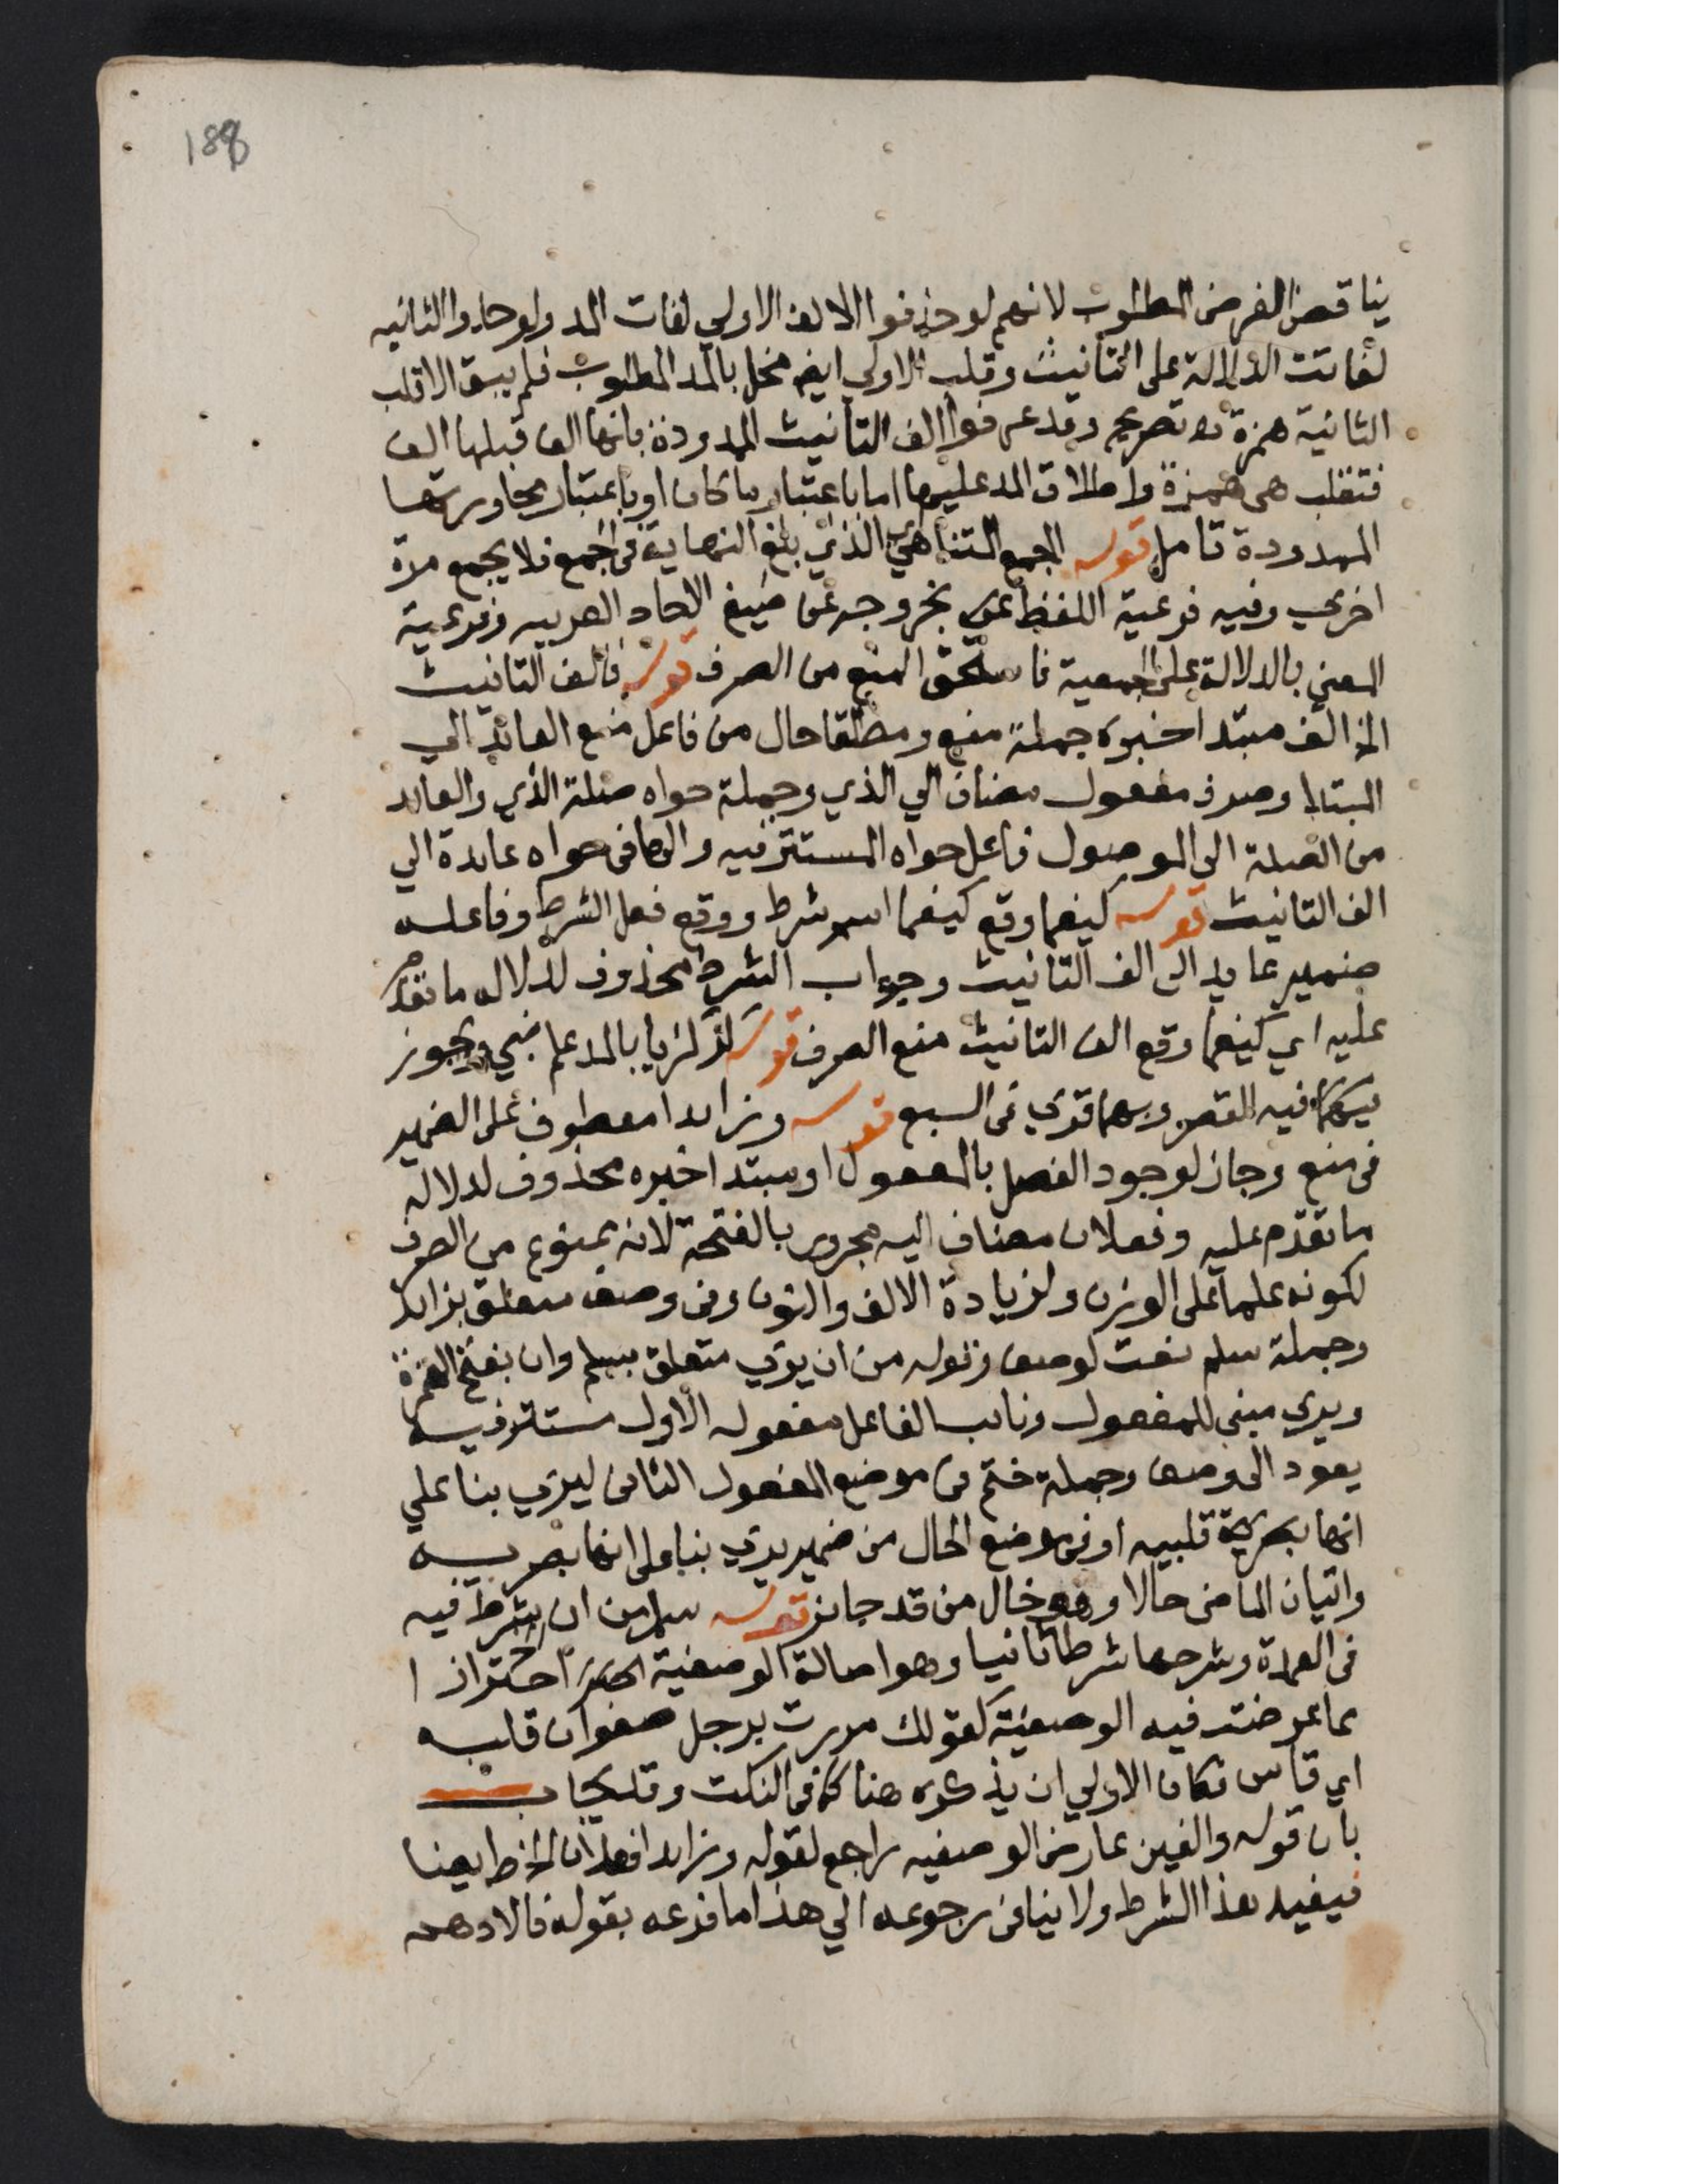 188
يناقض الغرض المطلوب لانهم لو حذفوا الالف الاولي لفات المد ولو حذفوا الثانيه
لفاتت الدلالة على التانيث وقلب الاولي ايضا مخل بالمد المطلوب فلم يبق الا قلب
الثانية همزة تصريح وقد عرفوا الف التانيث الممدودة بانها الف قبلها الف
فتقلب هى همزة واطلاق المد عليها اما باعتبار ما كان او باعتبار مجاورتها
الممدودة تامل قوله الجمع المتناهي الذي بلغ النهاية فى الجمع فلا يجمع مرة
اخري وفيه فرعية اللفظ بخروجه عن صيغ الاحاد العربيه وفرعية
المعني بالدلالة على الجمعية فاستحق المنع من الصرف قوله فالف التانيث
الخ الف مبتدا خبره جملة منع ومطلقا حال من فاعل منع العائد الي
المبتدا وصرف مفعول مضاف الي الذي وجملة حواه صلة الذي والعائد
من الصلة الى الموصول فاعل حواه المستتر فيه والها فى حواه عايدة الي
الف التانيث قوله كيفما وقع كيفما اسم شرط ووقع فعل الشرط وفاعله
ضمير عايد الى الف التانيث وجواب الشرط محذوف لدلاله ما تقدم
عليه اي كيفما وقع الف التانيث منع الصرف قوله كزكريا بالمد علم نبي ويجوز
فيه القصر وبهما قري فى السبع قوله وزايدا معطوف على الضمير
فى منع وجاز لوجود الفصل بالمفعول او مبتدا خبره محذوف لدلالة
ما تقدم عليه وفعلان مضاف اليه مجرور بالفتحة لانه ممنوع من الصرف
لكونه علما على الوزن ولزيادة الالف والنون وفى وصف متعلق بزايدا
وجملة سلم نعت لوصف وقوله من ان يري متعلق بسلم وان بفتح الهمزة
ويري مبنى للمفعول ونائب الفاعل مفعوله الاول مستتر فيه
يعود الى وصف وجملة ختم فى موضع المفعول الثانى ليري بنا علي
انها قلبيه او فى موضع الحال من ضمير يري بنا على انها بصريه
واتيان الماضى حالا وهو خال من قد جايز قوله سلم من ان شرط فيه
فى العمدة وشرحها شرطا ثانيا وهو اصالة الوصفية احترازا
مما عرضت فيه الوصفية كقولك مررت برجل صفوان قلبه
اي قاس فكان الاولي ان يذكره هنا كما فى النكت وقد يجاب
بان قوله والغين عارض الوصفيه راجع لقوله وزايدا فعلان الخ ايضا
فيفيد هذا الشرط ولا ينافى رجوعه الي هذا ما فرعه بقوله فالادهم